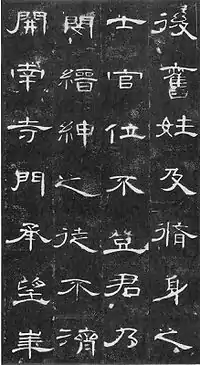 後舊姓及脩身之
士官位不登君乃
閔縉紳之徒不濟
開南寺門承望華